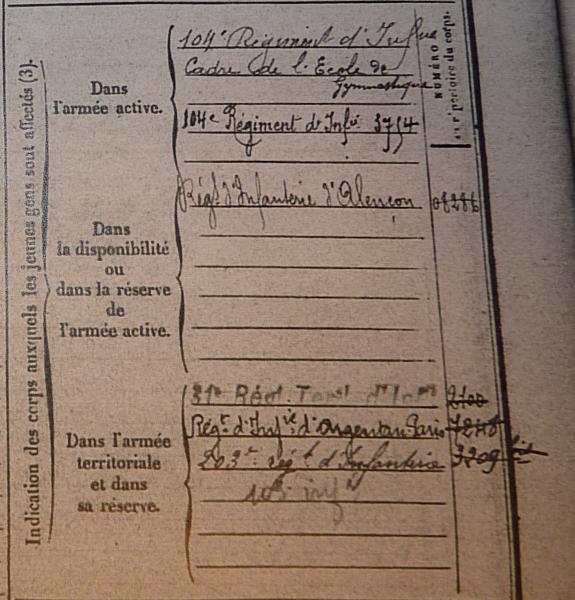 Indication des corps auxquels les jeunes gens sont affectés (3).
NUMÉRO
au répertoire du corps.
Dans
l'armée active.
104e Régiment d'Infrie
Cadre de l'Ecole de
Gymnastique
104e Régiment d'Infie 3754
Dans
la disponibilité
ou
dans la réserve
de
l'armée active.
Régt d'Infanterie d'Alençon
Dans l'armée
territoriale
et dans
sa réserve.
31e Régt. Terrl d'Infie 2100
Régt d'Infie d'Argentan-Paris
203e régt d'Infanterie 3209 bis